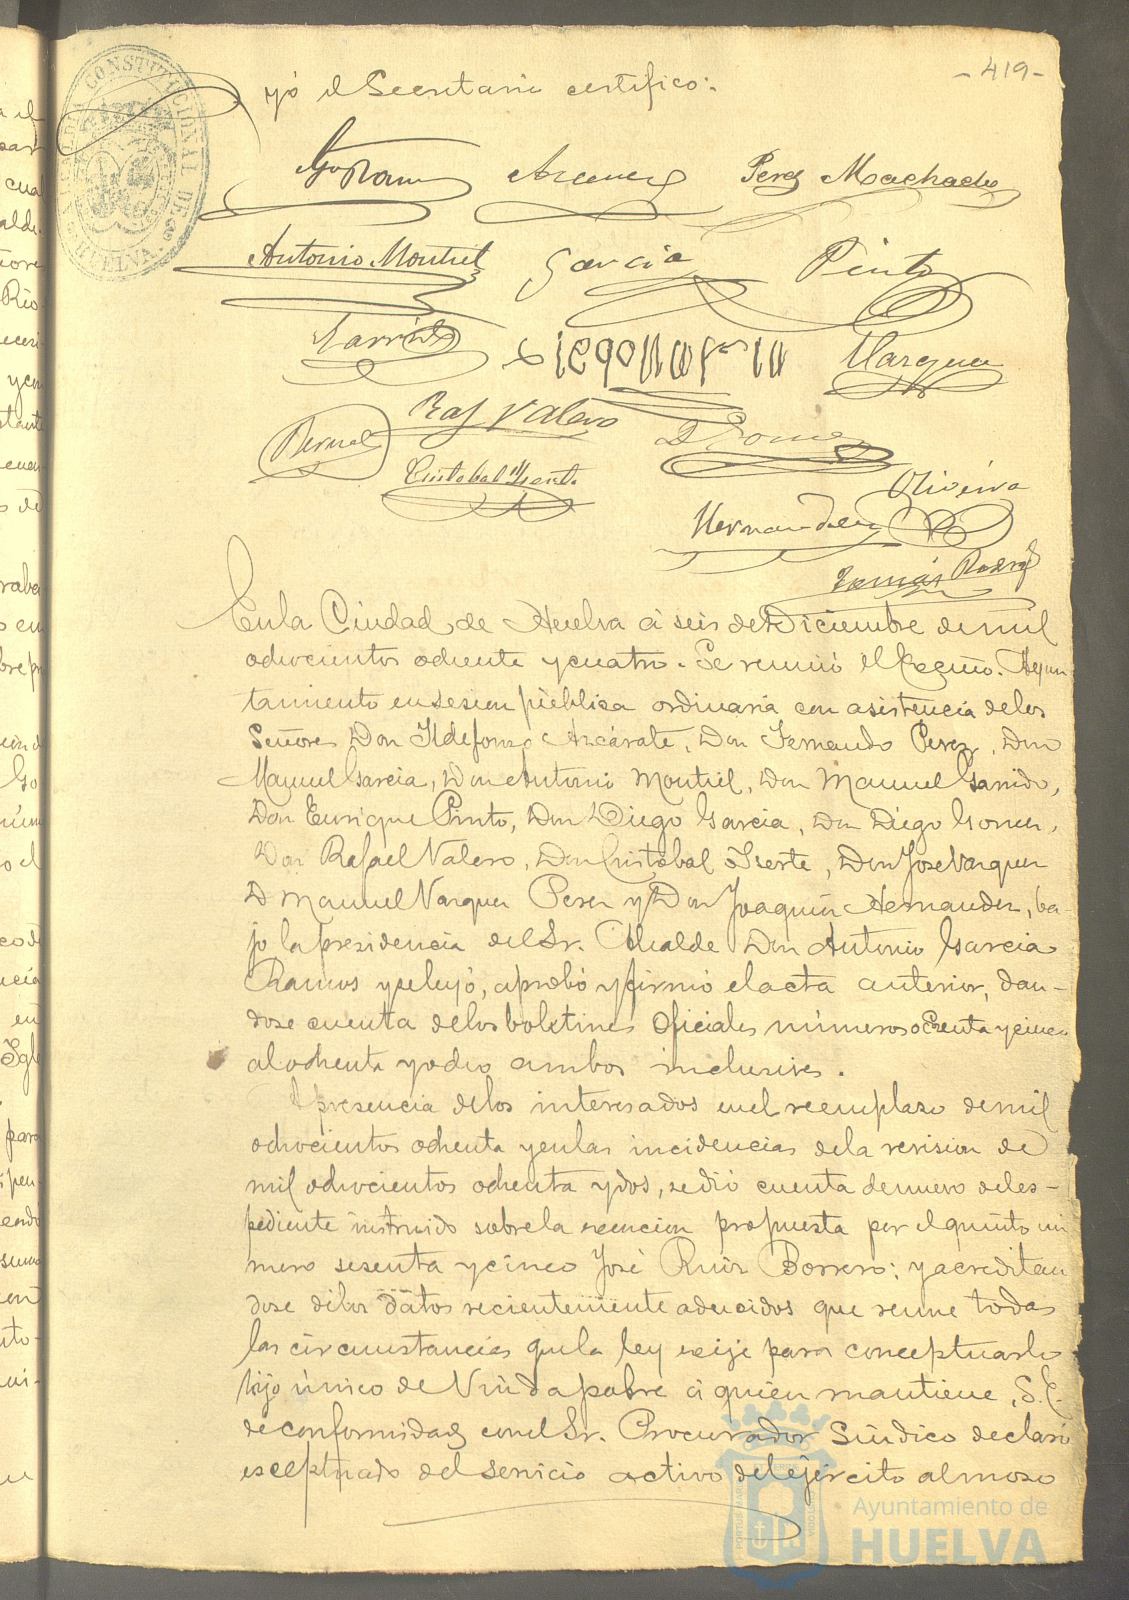 -419-
ALCALDIA CONSTITUCIONAL DE HUELVA
yó el Secretario certifico:
Gª Ramos Azcarate Perez Machado
Antonio Montiel Garcia Pinto
Garrido Vazquez
Raf Valero D Gomez
Bernal
Cristobal Yserte Oliveira
Hernandez
Tomás Rodrig
En la Ciudad de Huelva á seis de Diciembre de mil
ochocientos ochenta y cuatro. Se reunió el Excmo. Ayun-
tamiento en sesion pública ordinaria con asistencia de los
Señores Don Ildefonso Azcárate, Don Fernando Perez, Don
Manuel Garcia, Don Antonio Montiel, Don Manuel Garrido,
Don Enrique Pinto, Don Diego Garcia, Don Diego Gomez,
Don Rafael Valero, Don Cristobal Yserte, Don Jose Vazquez
D Manuel Vazquez Perez y Don Joaquin Hernandez, ba-
jo la presidencia del Sr. Alcalde Don Antonio Garcia
Ramos y se leyó, aprobó y firmó el acta anterior, dan-
dose cuenta de los boletines oficiales números ochenta y cinco
al ochenta y ocho ambos inclusives.
A presencia de los interesados en el reemplazo de mil
ochocientos ochenta y en las incidencias de la revision de
mil ochocientos ochenta y dos, se dió cuenta de nuevo del es-
pediente instruido sobre la exencion propuesta por el quinto nú
mero sesenta y cinco José Ruiz Borrero; y acreditan
dose de los datos recientemente aducidos que reune todas
las circunstancias que la ley exije para conceptuarlo
hijo único de Viuda pobre á quien mantiene, S.E.
de conformidad con el Sr. Procurador Sindico declaró
esceptuado del servicio activo del ejército al mozo
Ayuntamiento de
HUELVA